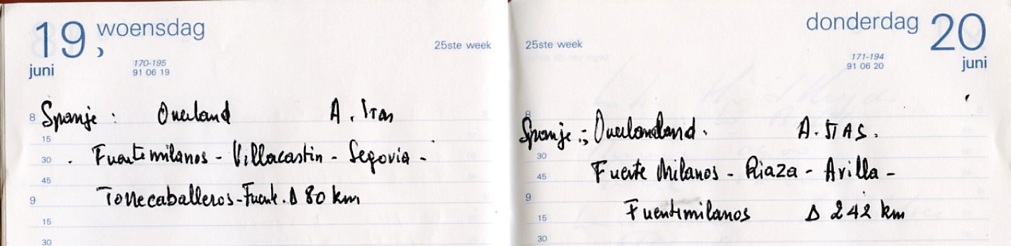 19 woensdag
juni
170-195
91 06 19
25ste week
8 Spanje : Overland A. Stas
15
30 . Fuentemilanos - Villacastin - Segovia -
45
9 Torrecaballeros - Fuente. Δ 80 km
15
30
donderdag 20
juni
25ste week
171-194
91 06 20
8
Spanje :; Overlandland. A. STAS.
30
Fuente Milanos - Riaza - Avilla -
45
9 Fuentimilanos Δ 242 km
15
30